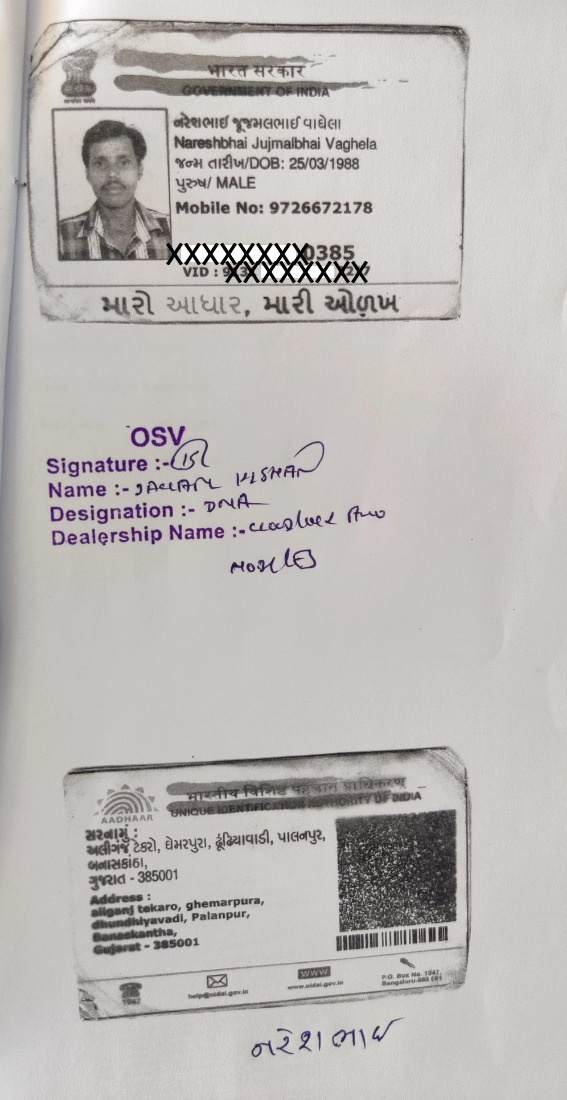 भारत सरकार
GOVERNMENT OF INDIA
નરેશભાઈ જૂજમલભાઈ વાઘેલા
Nareshbhai Jujmalbhai Vaghela
જન્મ તારીખ/DOB: 25/03/1988
પુરુષ/ MALE
Mobile No: 9726672178
XXXXXXXX0385
VID :
મારો આધાર, મારી ઓળખ
OSV
Signature :-
Name :-
Designation :- DNA
Dealership Name :-
Mobile
भारतीय विशिष्ट पहचान प्राधिकरण
UNIQUE IDENTIFICATION AUTHORITY OF INDIA
AADHAAR
સરનામું :
અલીગંજ ટેકરો, ઘેમરપુરા, ઢૂંઢિયાવાડી, પાલનપુર,
બનાસકાંઠા,
ગુજરાત - 385001
Address :
aliganj tekaro, ghemarpura,
dhundhiyavadi, Palanpur,
Banaskantha,
Gujarat - 385001
1947
help@uidai.gov.in
WWW
www.uidai.gov.in
P.O. Box No. 1947,
Bengaluru-560 001
નરેશભાઈ